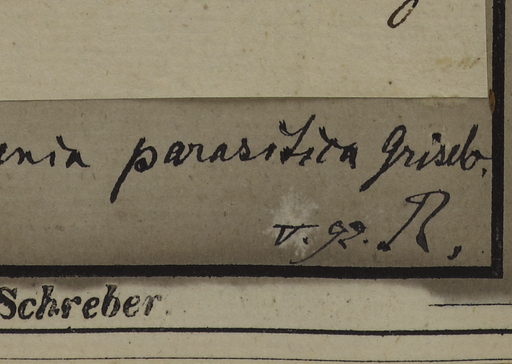 enia parasitica Griseb.
v. 92. R,
Schreber